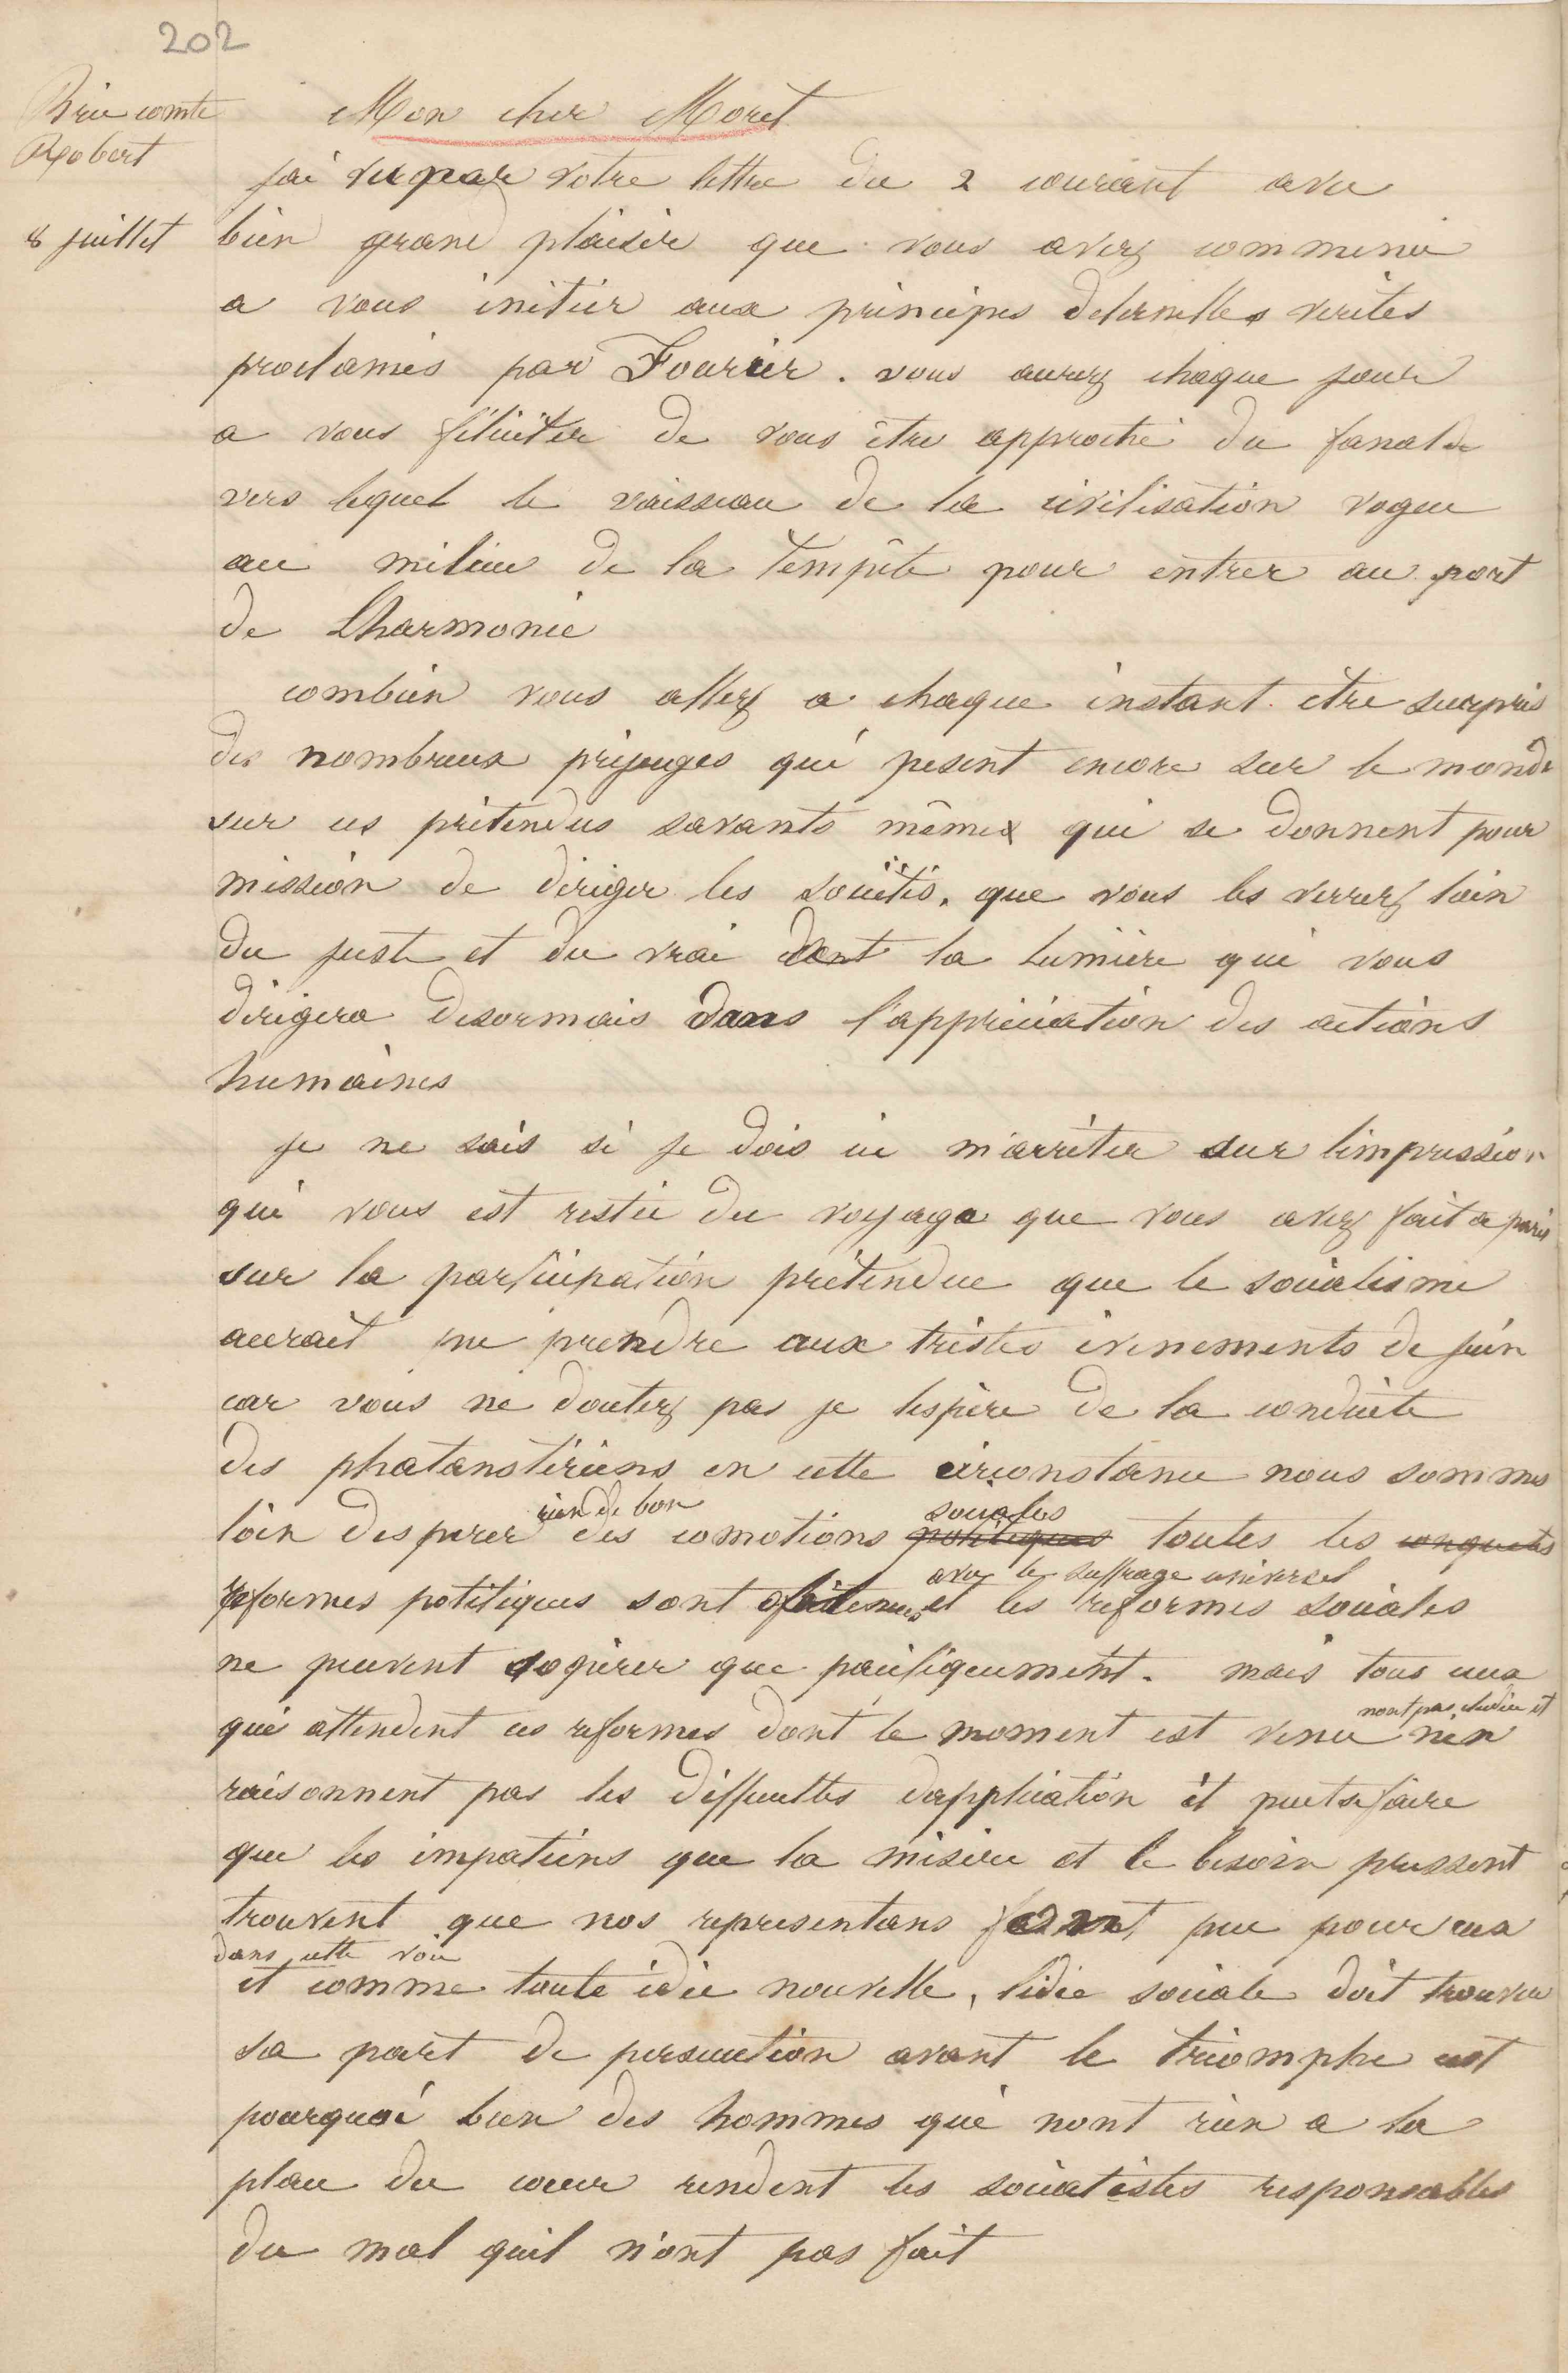 202
Brie comte
Robert
8 juillet
Mon cher Moret
jai vu par votre lettre du 2 courant avec
bien grand plaisir que vous avez commencé
a vous initier aux principes deternelles verites
proclamés par Fourier. vous aurez chaque jour
a vous féliciter de vous être approché du fanal
vers lequel le vaisseau de la civilisation vogue
au milieu de la tempête pour entrer au port
de Lharmonie
combien vous allez a chaque instant etre surpris
des nombreux prejuges qui pesent encore sur le monde
sur ces prétendus savants mêmes qui se donnent pour
mission de diriger les sociétés. que vous les verrez loin
du juste et du vrai dont la lumière qui vous
dirigera desormais dans l'appréciation des actions
humaines
je ne sais si je dois ici m'arrêter sur limpression
qui vous est restée du voyage que vous avez fait a paris
sur la participation prétendue que le socialisme
aurait pu prendre aux tristes évenements de juin
car vous ne doutez pas je lespère de la conduite
des phalanstériens en cette circonstance nous sommes
loin desperer rien de bon des comotions politiques sociales toutes les conquetes
reformes politiques sont obtenues avec le suffrage universel et les reformes sociales
ne peuvent sopérer que pacifiquement. mais tous ceux
qui attendent ces reformes dont le moment est venu nont pas étudié et nen
raisonnent pas les difficultes dapplication il peut se faire
que les impatiens que la misère et le besoin pressent
trouvent que nos representans font peu pour eux
dans cette voie
et comme toute idée nouvelle, lidée sociale doit trouver
sa part de persecution avant le triomphe cest
pourquoi bien des hommes qui nont rien a la
place du coeur rendent les socialistes responsables
du mal quil n'ont pas fait